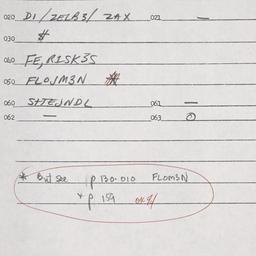 020 DI/ZELB3/ZAX 021 —
030 #
040 FE, RISK35
050 FLOJM3N *
060 SHTEJNDL 061 —
062 — 063
* But see p 130.010 FLOM3N
* p 159